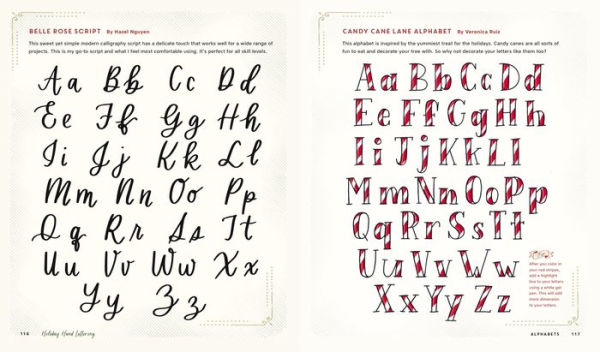 BELLE ROSE SCRIPT By Hazel Nguyen
This sweet yet simple modern calligraphy script has a delicate touch that works well for a wide range of
projects. This is my go-to script and what I feel most comfortable using. It's perfect for all skill levels.
Aa Bb Cc Dd
Ee Ff Gg Hh
Ii Jj Kk Ll
Mm Nn Oo Pp
Qq Rr Ss Tt
Uu Vv Ww Xx
Yy Zz
116 Holiday Hand Lettering
CANDY CANE LANE ALPHABET By Veronica Ruiz
This alphabet is inspired by the yummiest treat for the holidays. Candy canes are all sorts of
fun to eat and decorate your tree with. So why not decorate your letters like them too?
Aa Bb Cc Dd
Ee Ff Gg Hh
Ii Jj Kk Ll
Mm Nn Oo Pp
Qq Rr Ss Tt
Uu Vv Ww
Xx Yy Zz
After you color in
your red stripes,
add a highlight
line to your letters
using a white gel
pen. This will add
more dimension
to your letters.
ALPHABETS 117